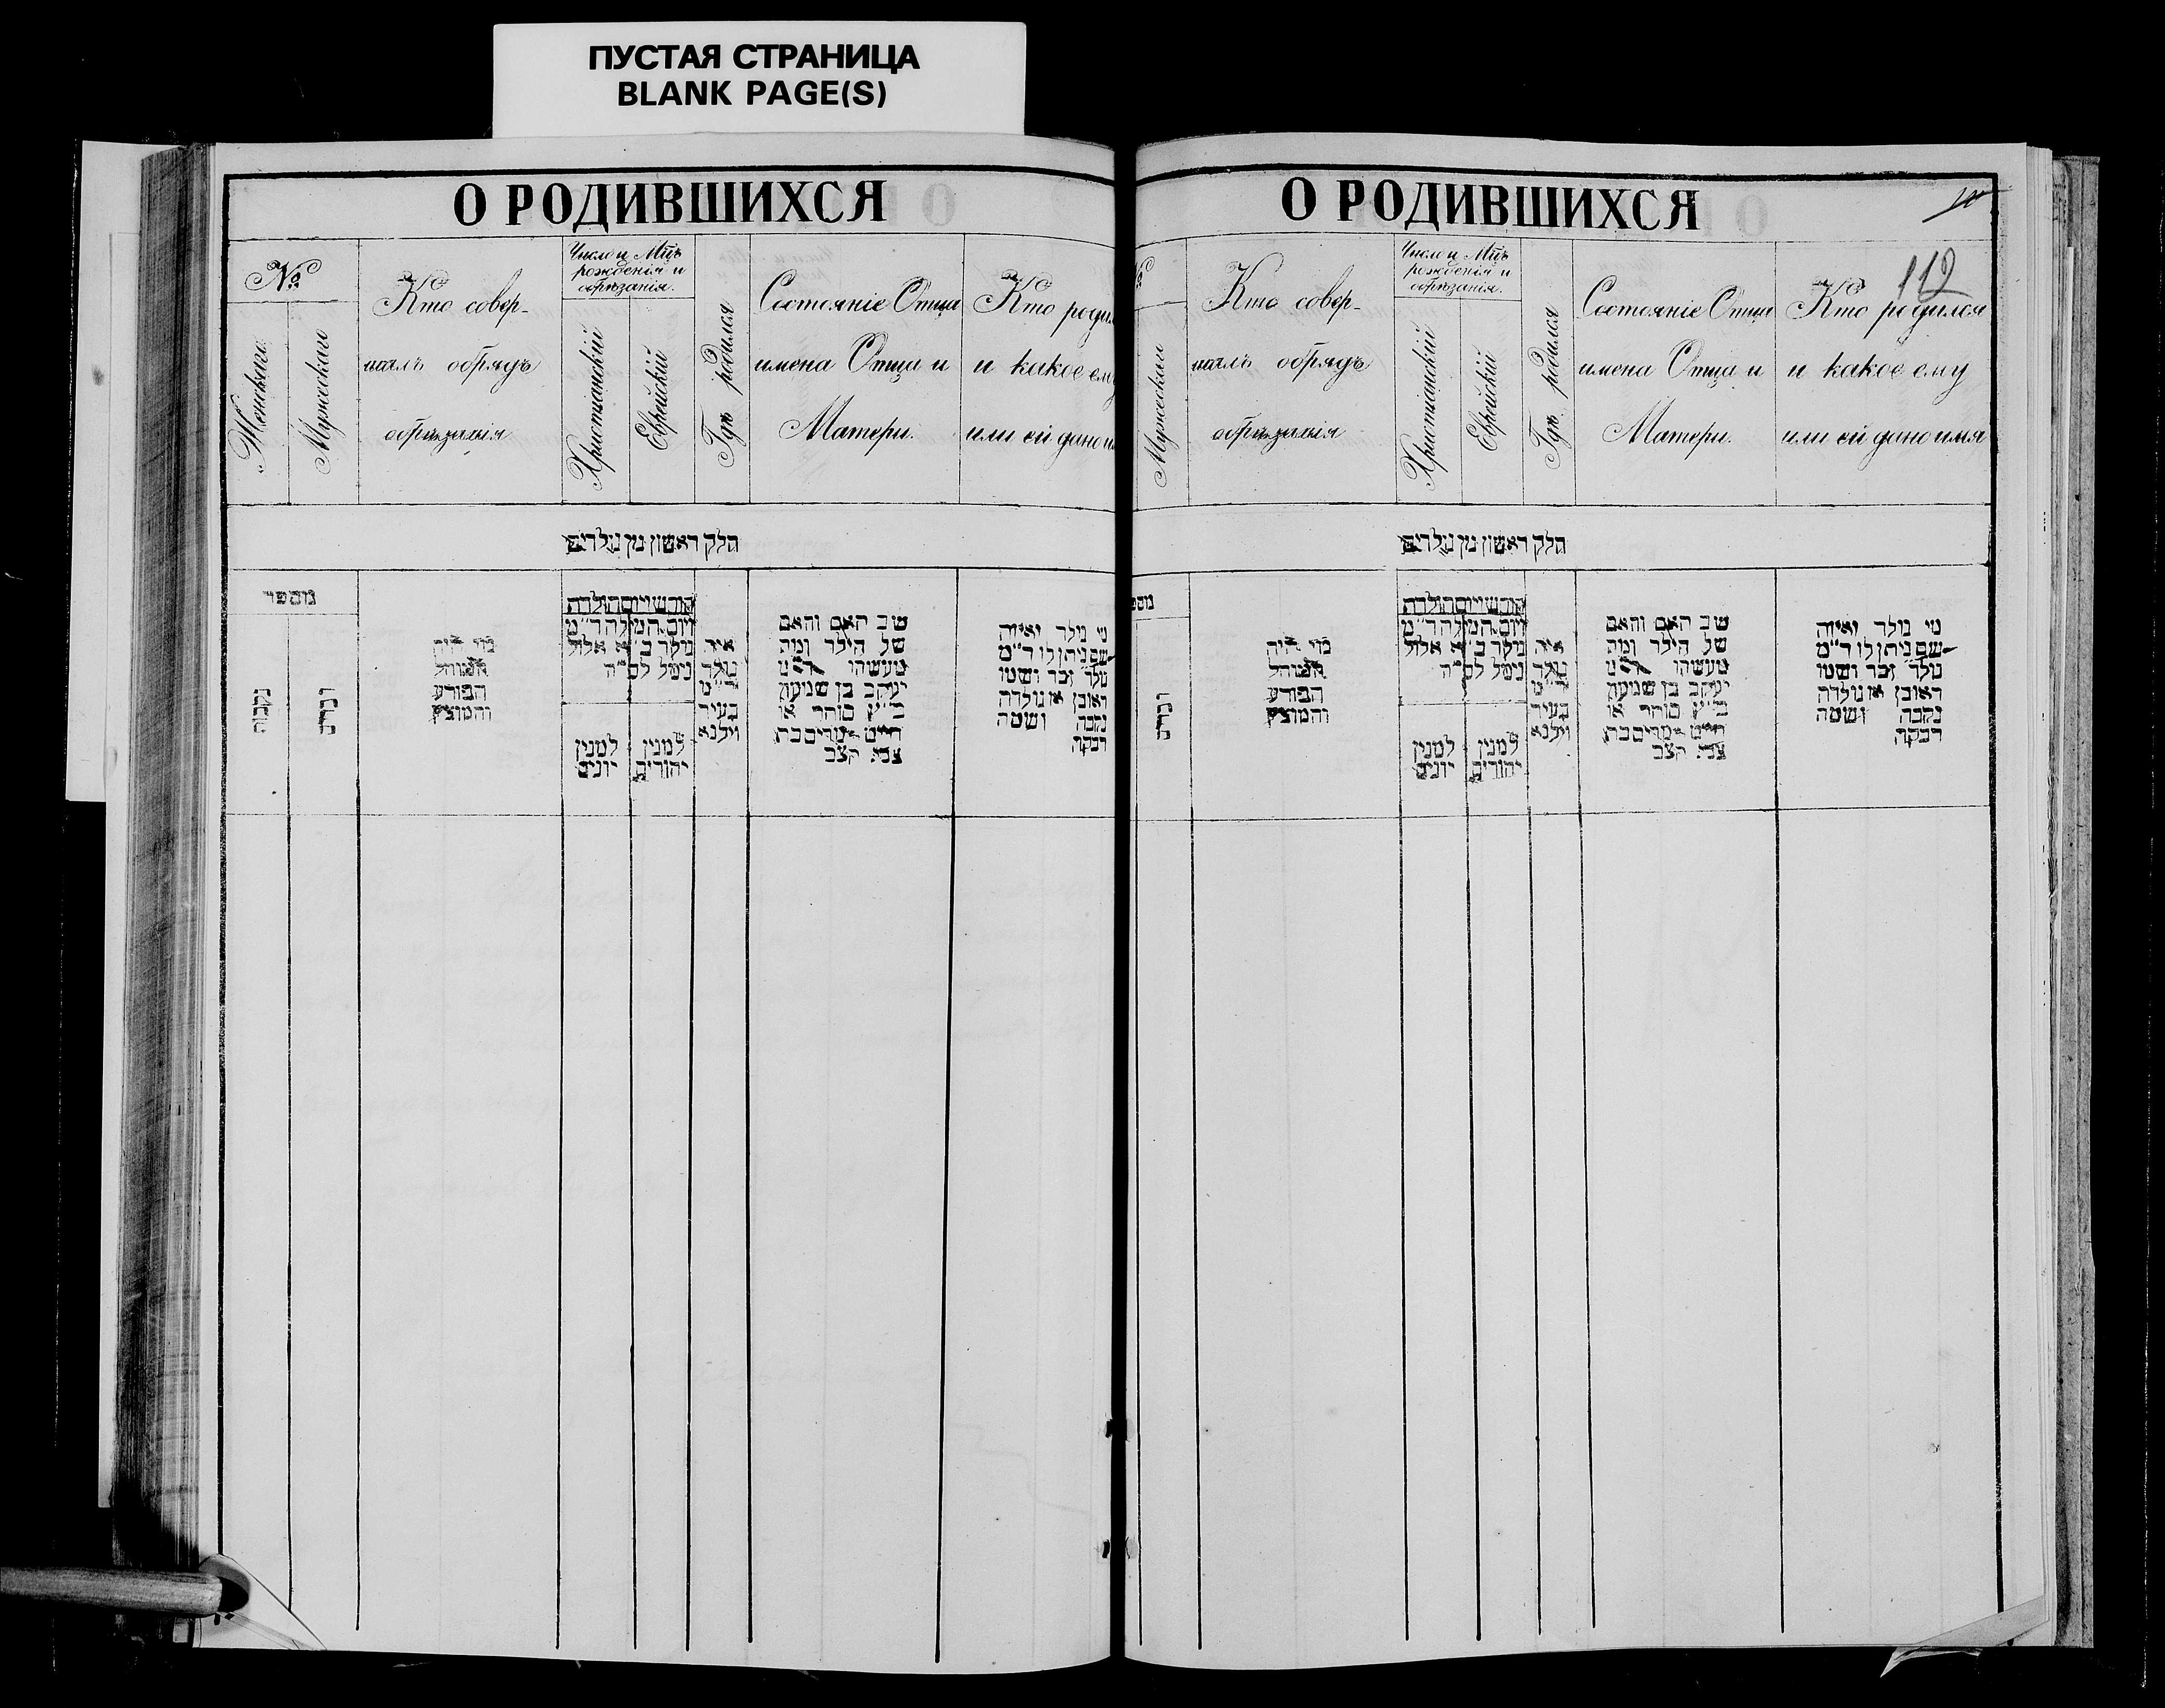 ПУСТАЯ СТРАНИЦА
BLANK PAGE(S)
О РОДИВШИХСЯ
№
Женскаго
Мужескаго
Кто совер-
шалъ обрядъ
обрѣзанія
Число и Мцъ
рожденія и
обрѣзанія.
Христіанскій
Еврейскій
Гдѣ родился
Состояніе Отца
имена Отца и
Матери.
Кто роди
и какое ему
или ей дано и
חלק ראשון מן נולדים
מספר
נקבות
זכרים
מי היה
המוהל
הפורע
והמוצץ
חודש ויום הולדת
ויום המילה ד״מ
נולד ב״א אלול
נימל לס״ה
למנין
יונים
למנין
יהודים
איה
נולד
ד״מ
בעיר
וילנא
שב האם והאם
של הילד ומה
מעשהו ד״מ
יעקב בן שמעון
כ״ץ סוחר או
חייט מרים בת
צבי קצב
מי נולד ואיזה
שם ניתן לו ד״מ
נולד זכר ושמו
ראובן או נולדה
נקבה ושמה
רבקה
О РОДИВШИХСЯ
10
112
№
Мужескаго
Кто совер-
шалъ обрядъ
обрѣзанія
Число и Мцъ
рожденія и
обрѣзанія.
Христіанскій
Еврейскій
Гдѣ родился
Состояніе Отца
имена Отца и
Матери.
Кто родился
и какое ему
или ей дано имя
חלק ראשון מן נולדים
מספ
זכרים
מי היה
המוהל
הפורע
והמוצץ
חודש ויום הולדת
ויום המילה ד״מ
נולד ב״א אלול
נימל לס״ה
למנין
יונים
למנין
יהודים
איה
נולד
ד״מ
בעיר
וילנא
שב האם והאם
של הילד ומה
מעשהו ד״מ
יעקב בן שמעון
כ״ץ סוחר או
חייט מרים בת
צבי קצב
מי נולד ואיזה
שם ניתן לו ד״מ
נולד זכר ושמו
ראובן או נולדה
נקבה ושמה
רבקה